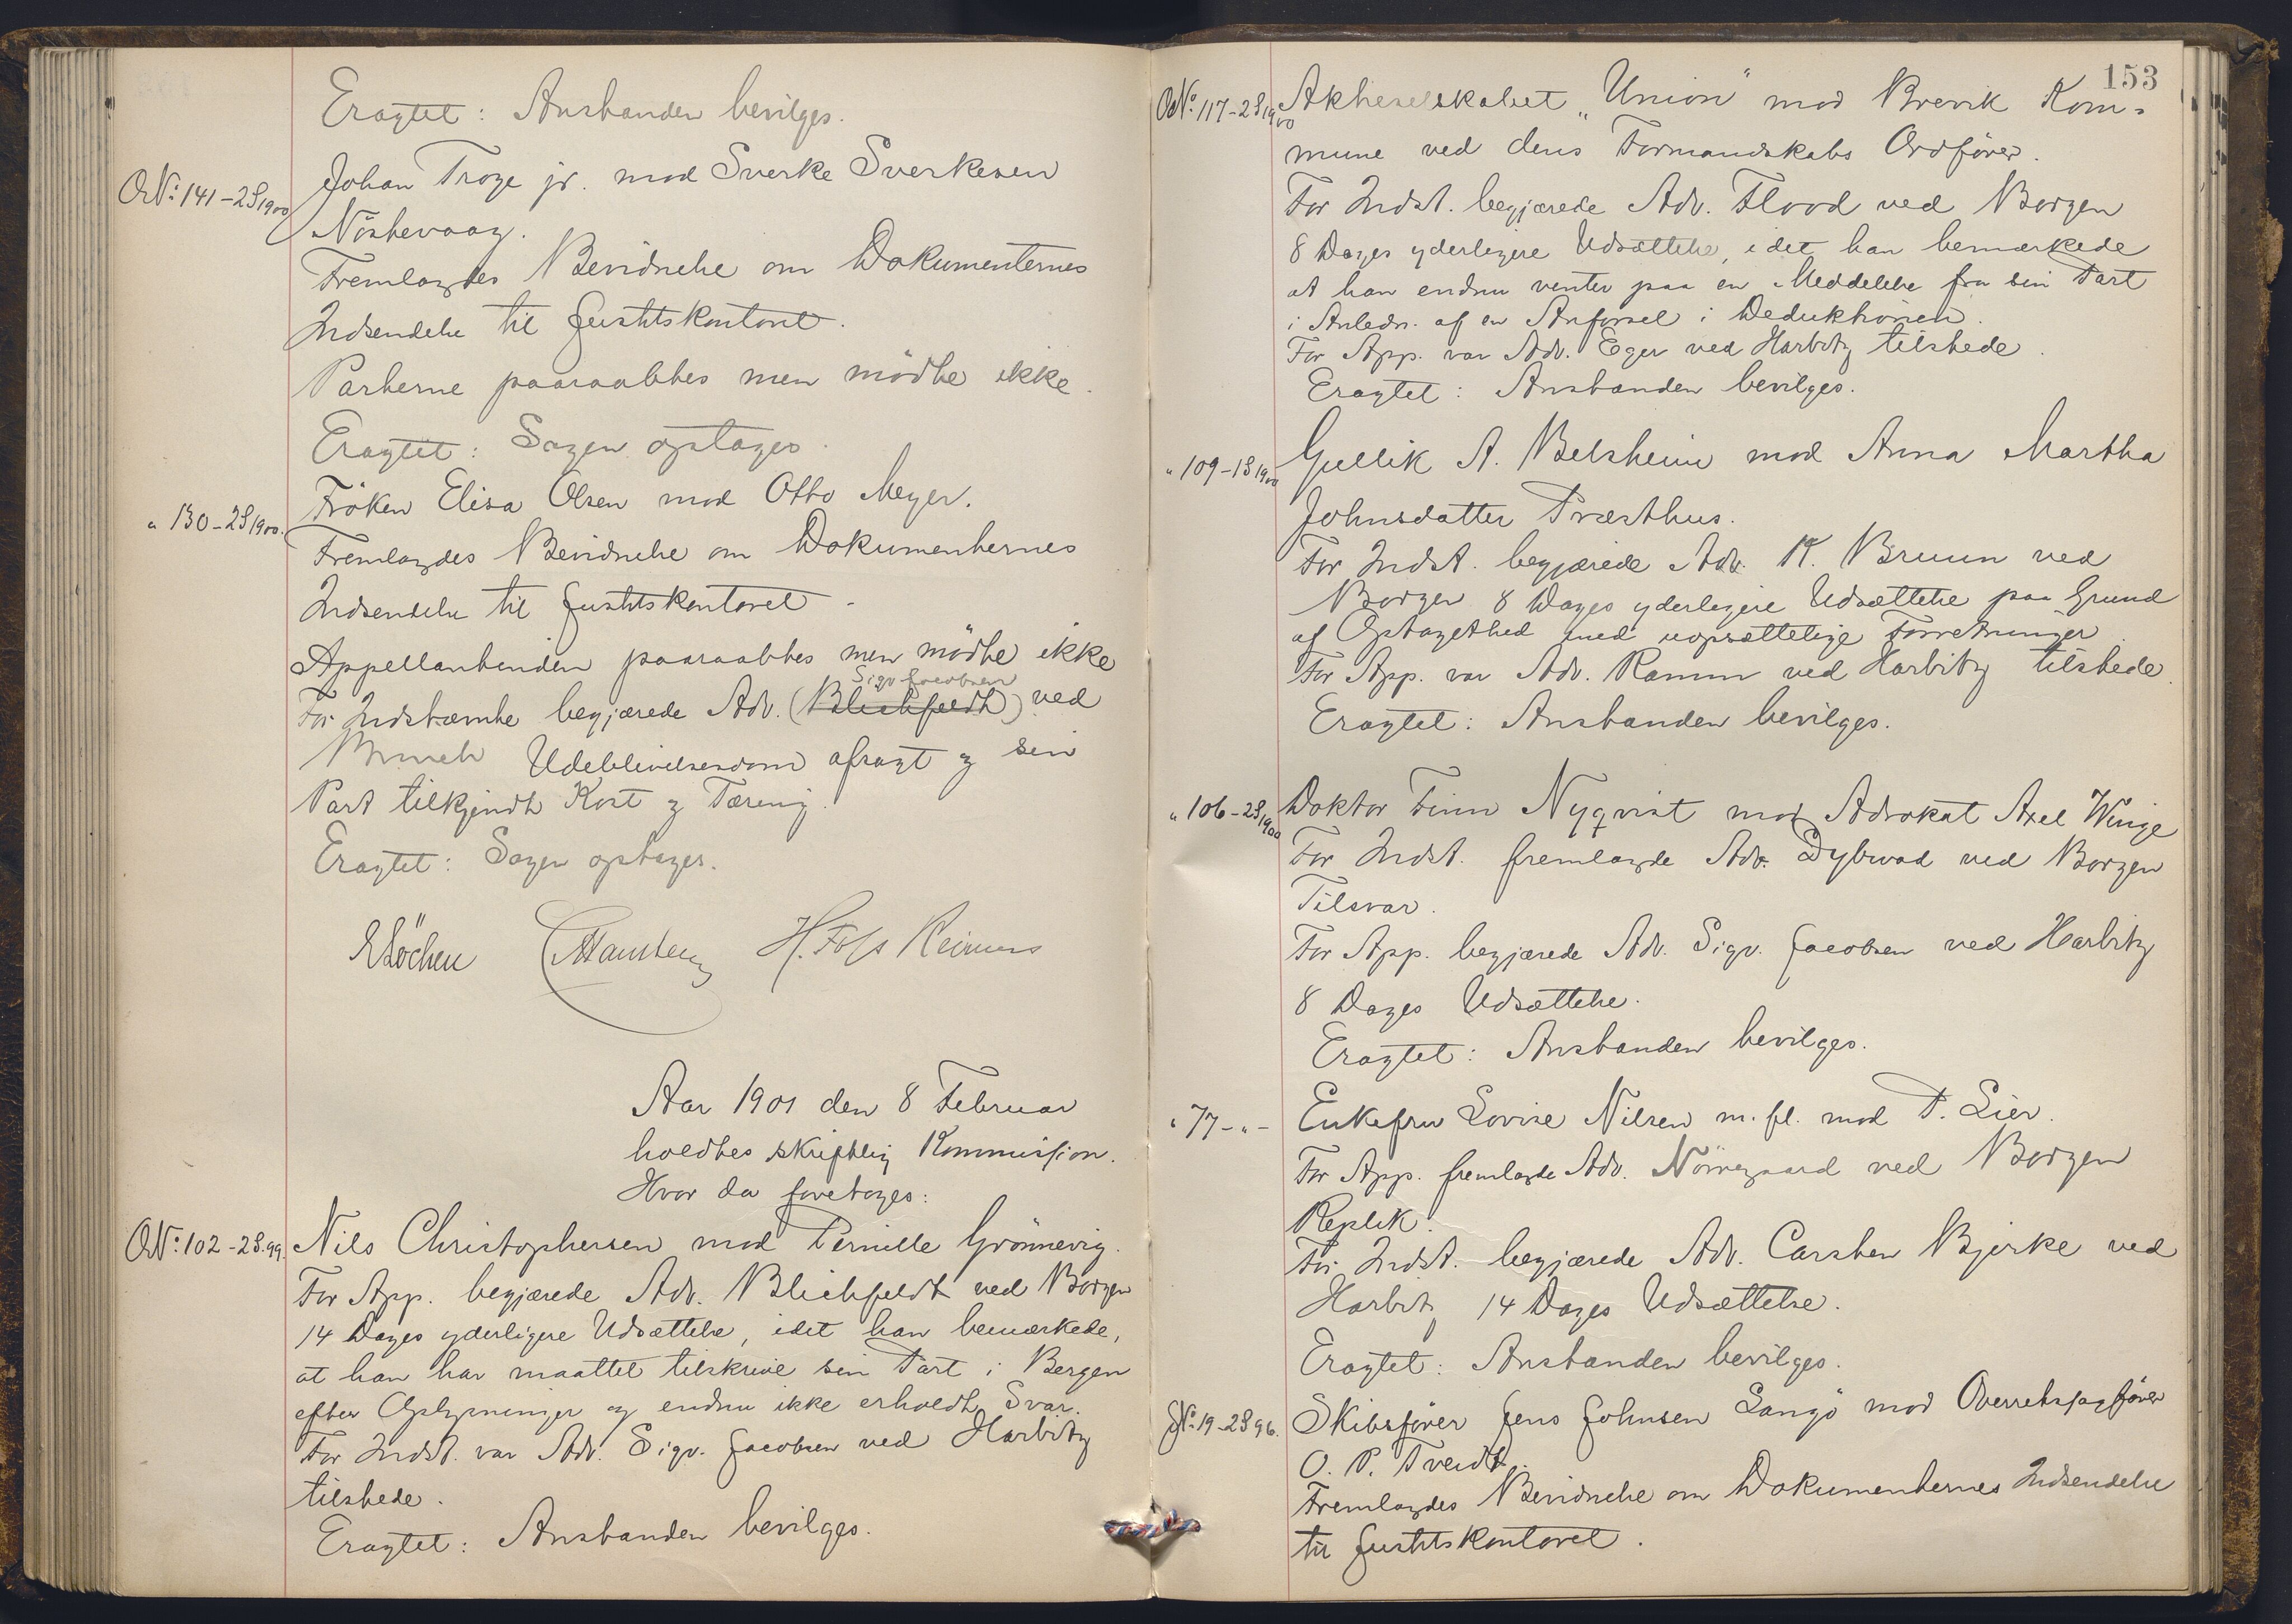 Eragtet: Anstanden bevilges.
O. No. 141-2S 1900 Johan Troye jr. mod Sverke Sverkesen
Nöstevaag.
Fremlagdes Bevidnelse om Dokumenternes
Indsendelse til Justitskontoret.
Parterne paaraabtes men mödte ikke.
Eragtet: Sagen optages.
" 130-2S 1900. Fröken Elisa Olsen mod Otto Meyer.
Fremlagdes Bevidnelse om Dokumenternes
Indsendelse til Justitskontoret.
Appellantinden paaraabtes men mödte ikke
Sigv Jacobsen
For Indstævnte begjærede Adv. (Blichfeldt) ved
Munch Udeblivelsesdom afsagt og sin
Part tilkjendt Kost og Tæring.
Eragtet: Sagen optages.
Löchen Hansteen H. Foss Reimers
Aar 1901 den 8 Februar
holdtes skriftlig Kommission.
Hvor da foretoges:
O. No: 102-2S.99. Nils Christophersen mod Pernille Grönnevig.
For App. begjærede Adv. Blichfeldt ved Borgen
14 Dages yderligere Udsættelse, idet han bemærkede,
at han har maattet tilskrive sin Part i Bergen
efter Oplysninger og endnu ikke erholdt Svar.
For Indst. var Adv. Sigv. Jacobsen ved Harbitz
tilstede.
Eragtet: Anstanden bevilges.
153
O. No. 117-2S 1900 Aktieselskabet "Union" mod Brevik Kom-
mune ved dens Formandskabs Ordförer.
For Indst. begjærede Adv. Flood ved Borgen
8 Dages yderligere Udsættelse, idet han bemærkede
at han endnu venter paa en Meddelelse fra sin Part
i Anledn. af en Anförsel i Deduktionen.
For App. var Adv. Eger ved Harbitz tilstede.
Eragtet: Anstanden bevilges.
" 109-1S 1900 Gullik A. Belsheim mod Anna Martha
Johnsdatter Præsthus.
For Indst. begjærede Adv. K. Bruun ved
Borgen 8 Dages yderligere Udsættelse paa Grund
af Optagethed med uopsættelige Forretninger.
For App. var Adv. Ramm ved Harbitz tilstede.
Eragtet: Anstanden bevilges.
" 106-2S 1900 Doktor Finn Nyqvist mod Advokat Axel Winge
For Indst. fremlagde Adv. Dybwad ved Borgen
Tilsvar.
For App. begjærede Adv. Sigv. Jacobsen ved Harbitz
8 Dages Udsættelse.
Eragtet: Anstanden bevilges.
" 77-"- Enkefru Lovise Nilsen m. fl. mod P. Lier.
For App. fremlagde Adv. Nörregaard ved Borgen
Replik.
For Indst. begjærede Adv. Carsten Bjerke ved
Harbitz 14 Dages Udsættelse.
Eragtet: Anstanden bevilges.
No. 19-2S 96. Skibsförer Jens Johnsen Langö mod Overretssagförer
O. P. Tveidt.
Fremlagdes Bevidnelse om Dokumenternes Indsendelse
til Justitskontoret.